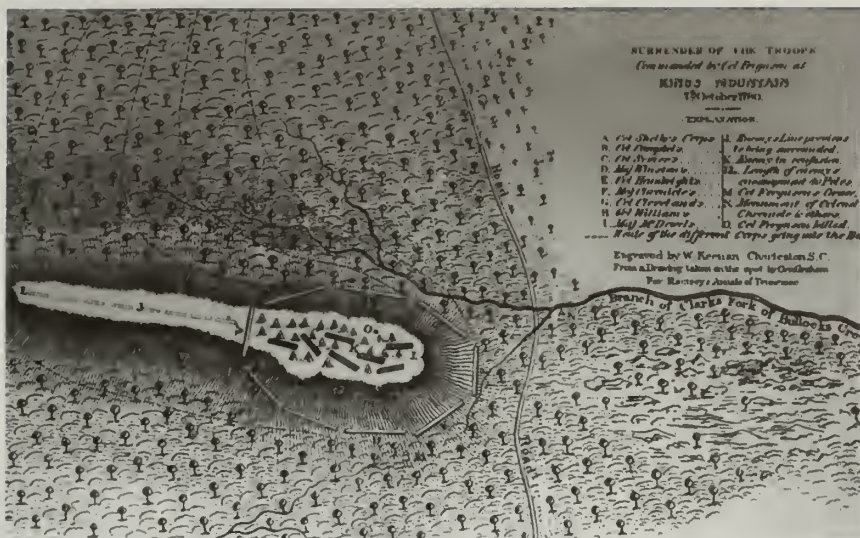 SURRENDER OF THE TROOPS
Commanded by Col Ferguson at
KINGS MOUNTAIN
7th October 1780.
EXPLANATION.
A. Col Shelbys Corps
B. Col Campbels
C. Col Seviers
D. Maj Winstons
E. Col Hambrights
F.
G. Col Clevelands
H. Col Williams
I. Maj McDowels
J. Enemys Line previous
to being surrounded.
K. Enemy in confusion.
L. Length of enemys
encampment
M. Col Fergusons Grave.
N. Monument of Colonel
Chronicle & others.
O. Col Ferguson killed.
Route of the different Corps going into the
Engraved by W. Keenan Charleston S.C.
From a Drawing taken on the spot by Gen Graham
For Ramseys Annals of Tennessee
Branch of Clarks Fork of Bullocks
Road
L
J
O